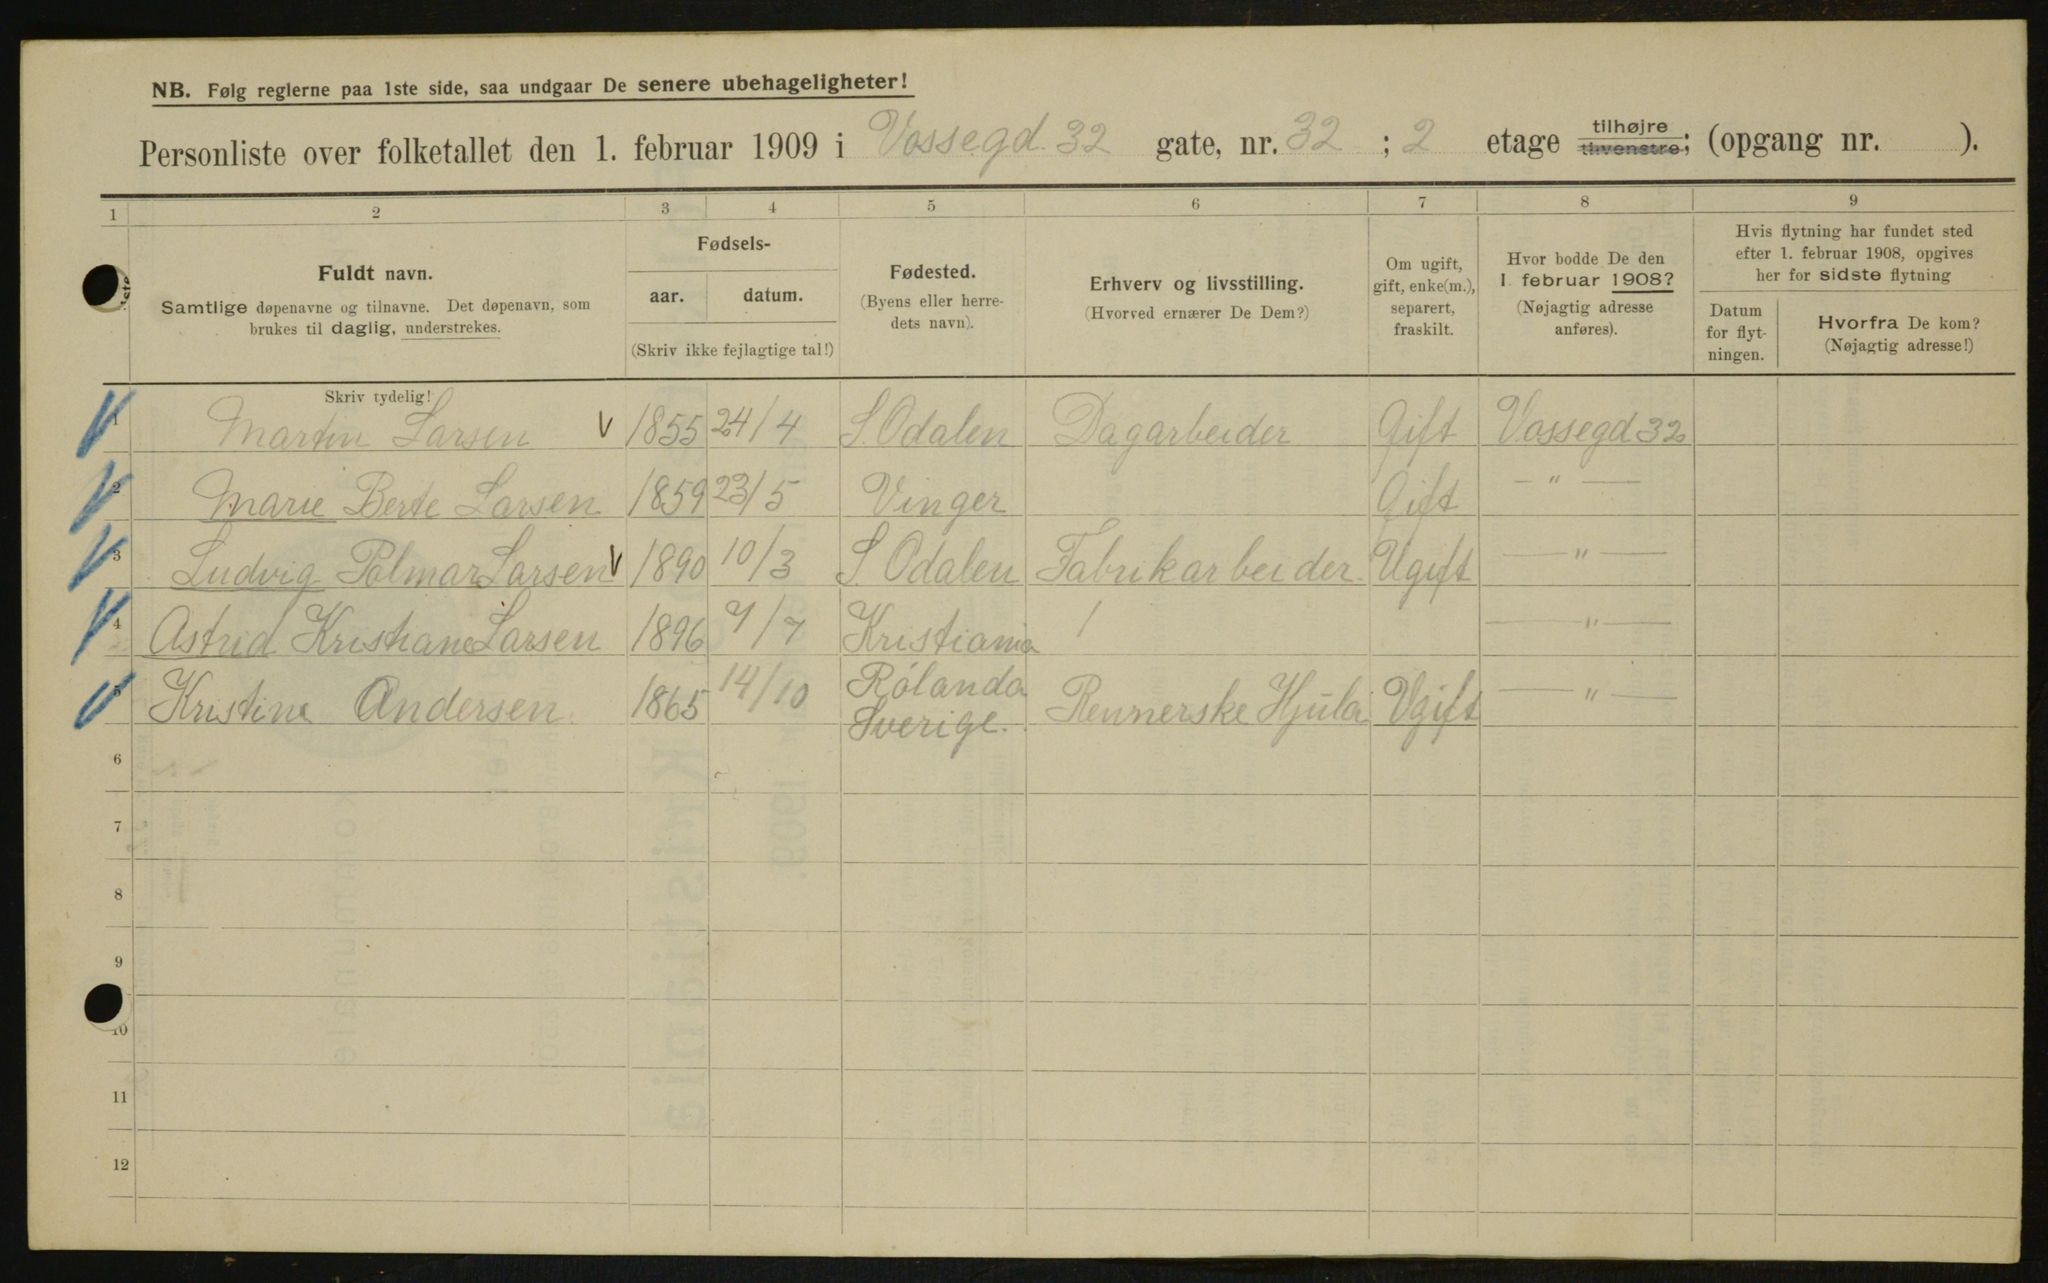 NB. Følg reglerne paa 1ste side, saa undgaar De senere ubehageligheter!
Personliste over folketallet den 1. februar 1909 i Vossegd. 32 gate, nr. 32 ; 2 etage tilhøjre tilvenstre; (opgang nr. ).
1 2 3 4 5 6 7 8 9
Fuldt navn.
Samtlige døpenavne og tilnavne. Det døpenavn, som
brukes til daglig, understrekes.
Fødsels-
aar. datum.
(Skriv ikke fejlagtige tal!)
Fødested.
(Byens eller herre-
dets navn).
Erhverv og livsstilling.
(Hvorved ernærer De Dem?)
Om ugift,
gift, enke(m.),
separert,
fraskilt.
Hvor bodde De den
1. februar 1908?
(Nøjagtig adresse
anføres).
Hvis flytning har fundet sted
efter 1. februar 1908, opgives
her for sidste flytning
Datum
for flyt-
ningen.
Hvorfra De kom?
(Nøjagtig adresse!)
Skriv tydelig!
1 Martin Larsen 1855 24/4 S. Odalen Dagarbeider Gift Vossegd 32
2 Marie Berte Larsen 1859 23/5 Vinger Gift — " —
3 Ludvig Palmar Larsen 1890 10/3 S. Odalen Fabrikarbeider. Ugift — " —
4 Astrid Kristiane Larsen 1896 7/7 Kristiania / — " —
5 Kristine Andersen 1865 14/10 Rölanda Sverige. Rennerske Hjula Ugift — " —
6
7
8
9
10
11
12